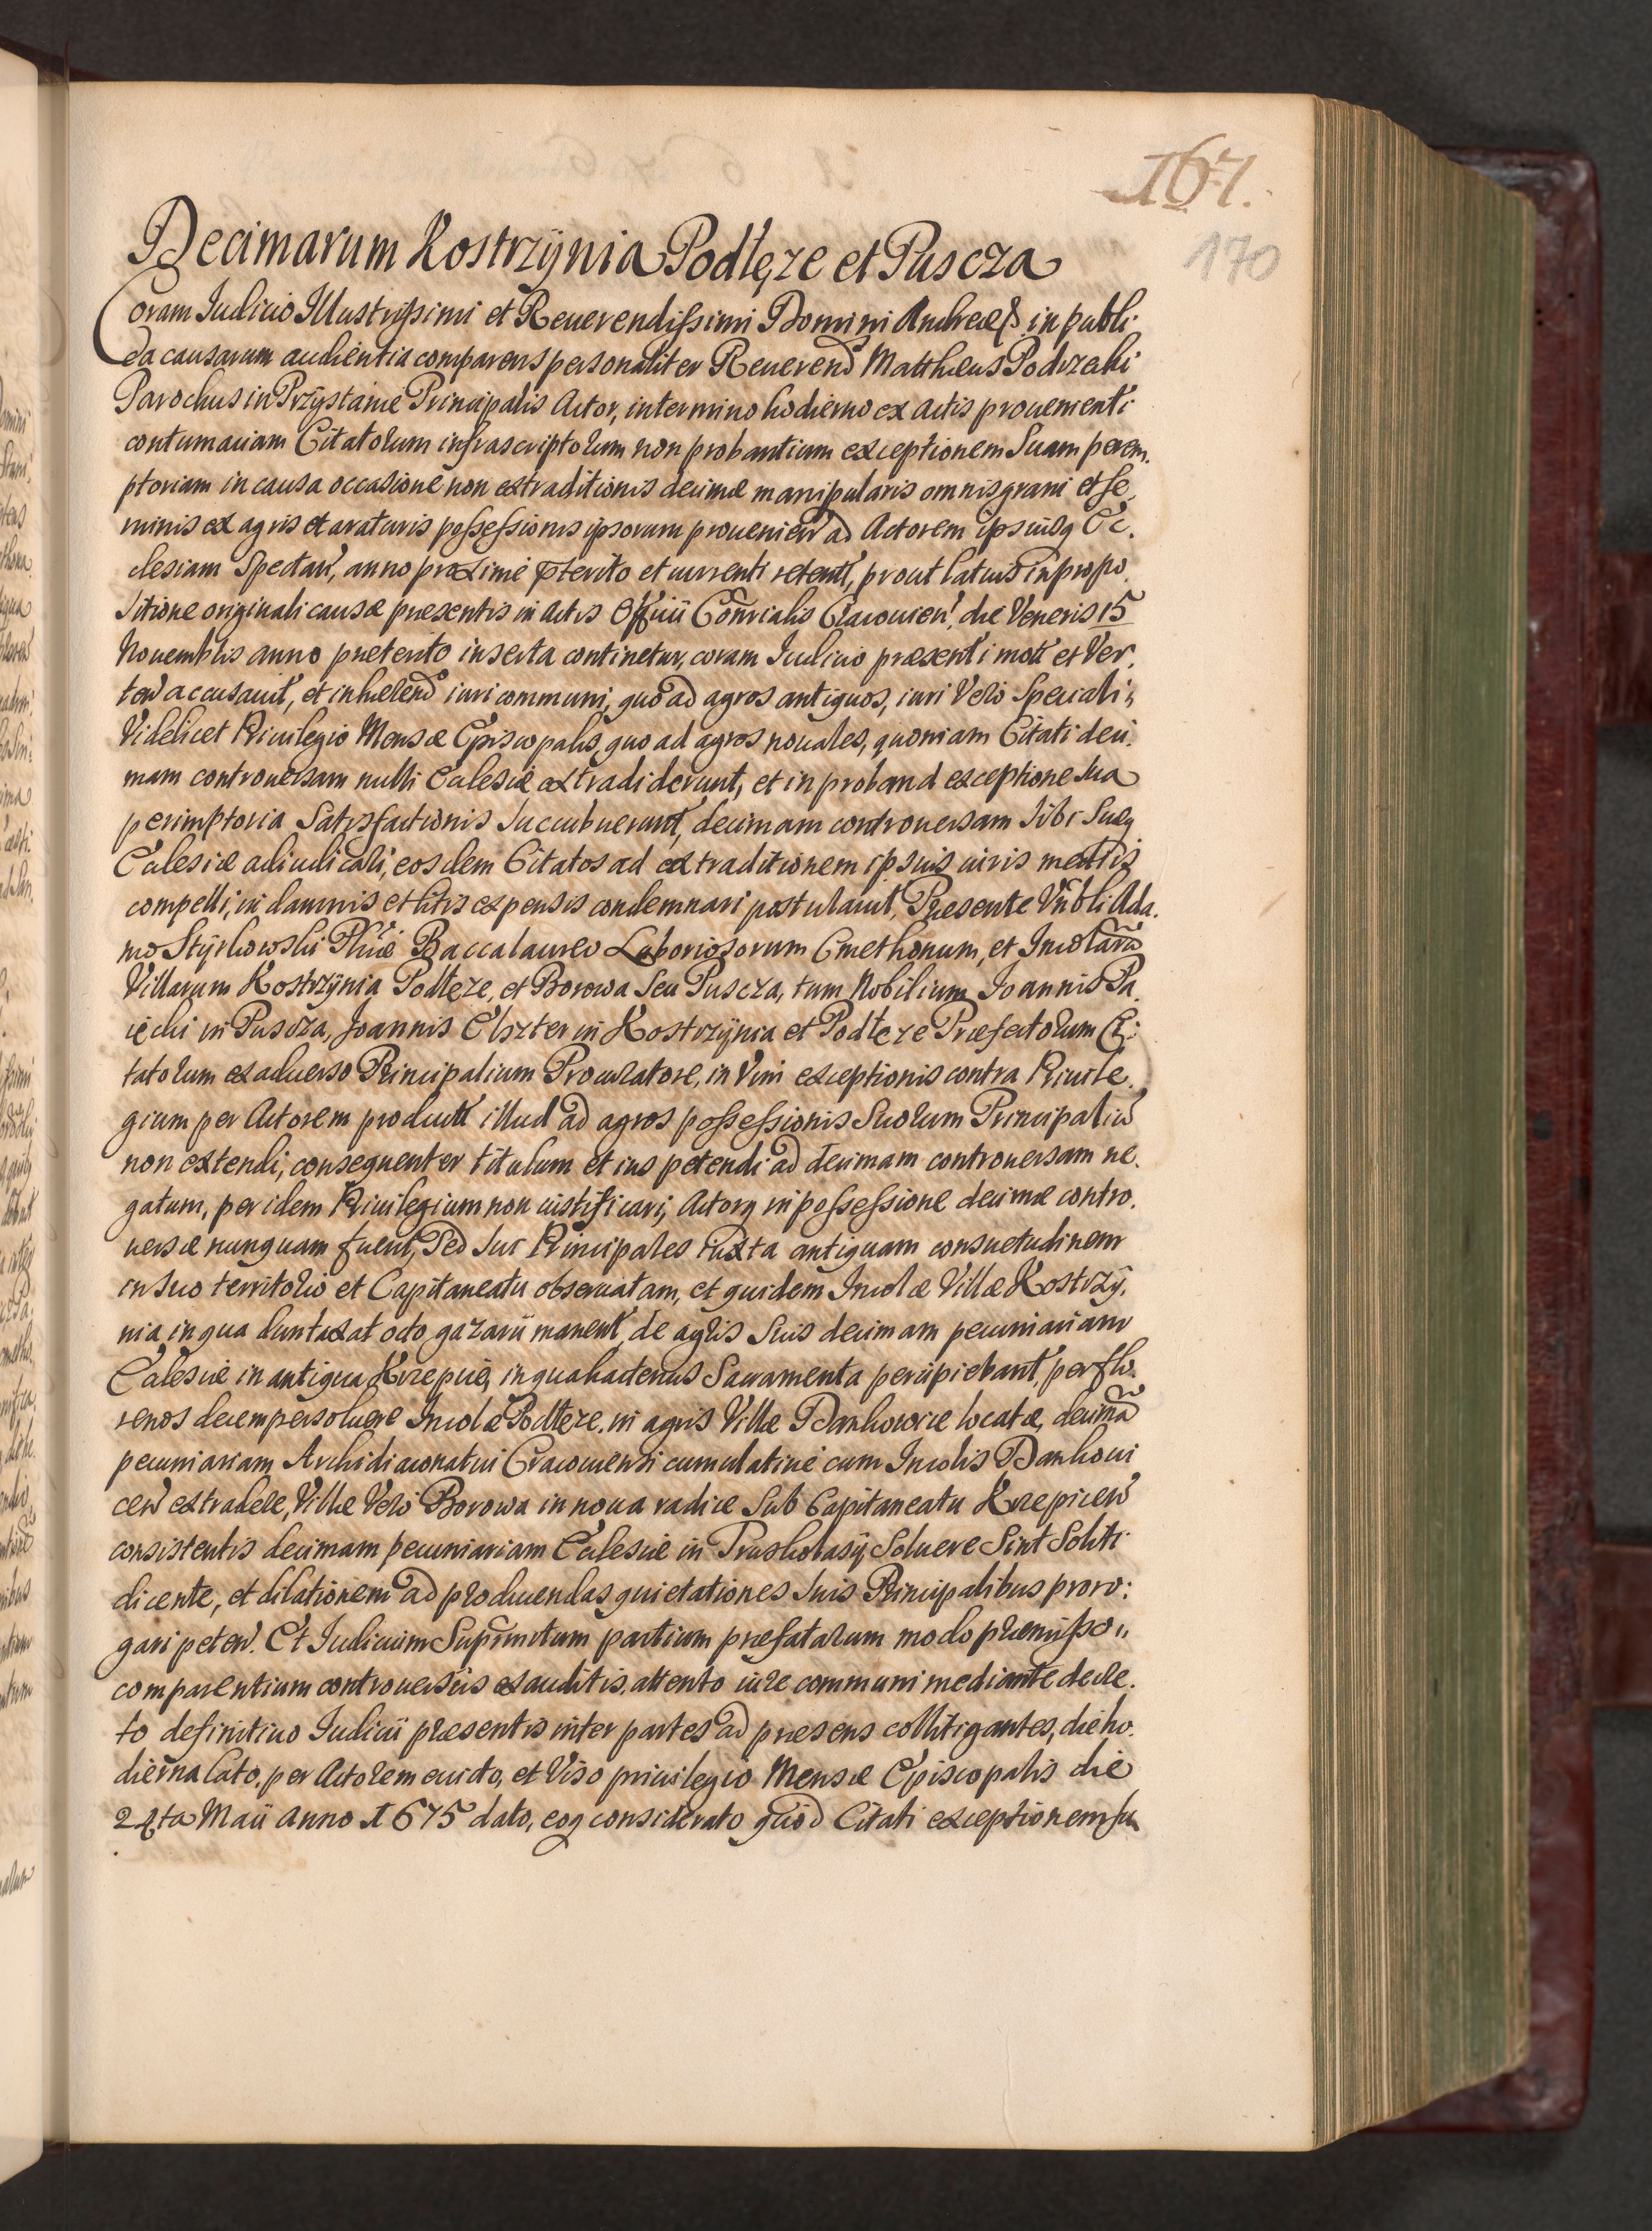 167.
170
Decimarum Kostrzÿnia Podłęze et Puscza
Coram Iudicio Illustrissimi et Reuerendissimi Domini Andreæ in publi-
ca causarum audientia comparens personaliter Reuerend Matthæus Podrzecki
Parochus in Przÿstanie Principalis Actor, in termino hodierno ex actis prouenienti
contumaciam Citatorum infrascriptorum non probantium exceptionem Suam perem.
ptoriam in causa occasione non extraditionis decimæ manipularis omnis grani et Se,
minis ex agris et araturis possessionis ipsorum prouenien ad Actorem ipsiusq Ec.
clesiam Spectan, anno proxime pterito et currenti retent, prout latius in propo.
sitione originali causæ præsentis in Actis Officii Consrialis Cracouien, die Veneris 15
Nouembris anno præterito inserta continetur, coram Iudicio præsenti mott et Ver,
ten accusauit, et inhærend iuri communi, quo ad agros antiquos, iuri Vero Speciali,
Videlicet Priuilegio Mensæ Episcopalis, quo ad agros nouales, quoniam Citati deci.
mam controuersam nulli Ecclesiæ extradiderunt, et in proband exceptione sua
perimptoria Satisfactionis succubuerunt, decimam controuersam sibi Sueq
Ecclesiæ adiudicari, eosdem Citatos ad extraditionem ipsius iuris mediis
compelli, in damnis et litis expensis condemnari postulauit, Præsente Vnbli Ada.
mo Stÿrkowski Phiæ Baccalaureo Laboriosorum Cmethonum, et Incolarũ
Villarum Kostrzÿnia Podłęze, et Borowa Seu Puscza, tum Nobilium Joannis Pa
ięcki in Puscza, Joannis Elszter in Kostrzÿnia et Podłęze Præfectorum Ci:
tatorum ex aduerso Principalium Procuratore, in Vim exceptionis contra Priuile.
gium per Actorem product illud ad agros possessionis Suorum Principaliũ
non extendi, consequenter titulum et ius petendi ad decimam controuersam ne.
gatum, per idem Priuilegium non iustificari, Actorq in possessione decimæ contro.
uersæ nunquam fuerit, Sed Sui Principales iuxta antiquam consuetudinem
in suo territorio et Capitaneatu obseruatam, et quidem Incolæ Villæ Kostrzÿ.
nia in qua duntaxat octo gazarii manent, de agris Suis decimam pecuniariam
Ecclesiæ in antiqua Krzepice, in qua hactenus Sacramenta percipiebant, per flo.
renos decem persoluere Incolæ Podłęze, in agris Villæ Dankowice locatæ, decimã
pecuniariam Archidiaconatui Cracouiensi cumulatiue cum Incolis Dankoui
cen extradere, Villæ Vero Borowa in noua radice Sub Capitaneatu Krzepicen
consistentis decimam pecuniariam Ecclesiæ in Truskolasÿ Soluere Sint Soliti
dicente, et dilationem ad producendas quietationes suis Principalibus proro:
gari peten. Et Iudicium Suprimitum partium præfatarum modo præmisso,,
comparentium controuersiis exauditis, attento iure communi mediante decre.
to definitiuo Iudicii præsentis inter partes ad præsens collitigantes, die ho.
dierna lato, per Actorem euicto, et Viso priuilegio Mensæ Episcopalis die
24ta Maii Anno 1675 dato, eoq considerato quod Citati exceptionem su